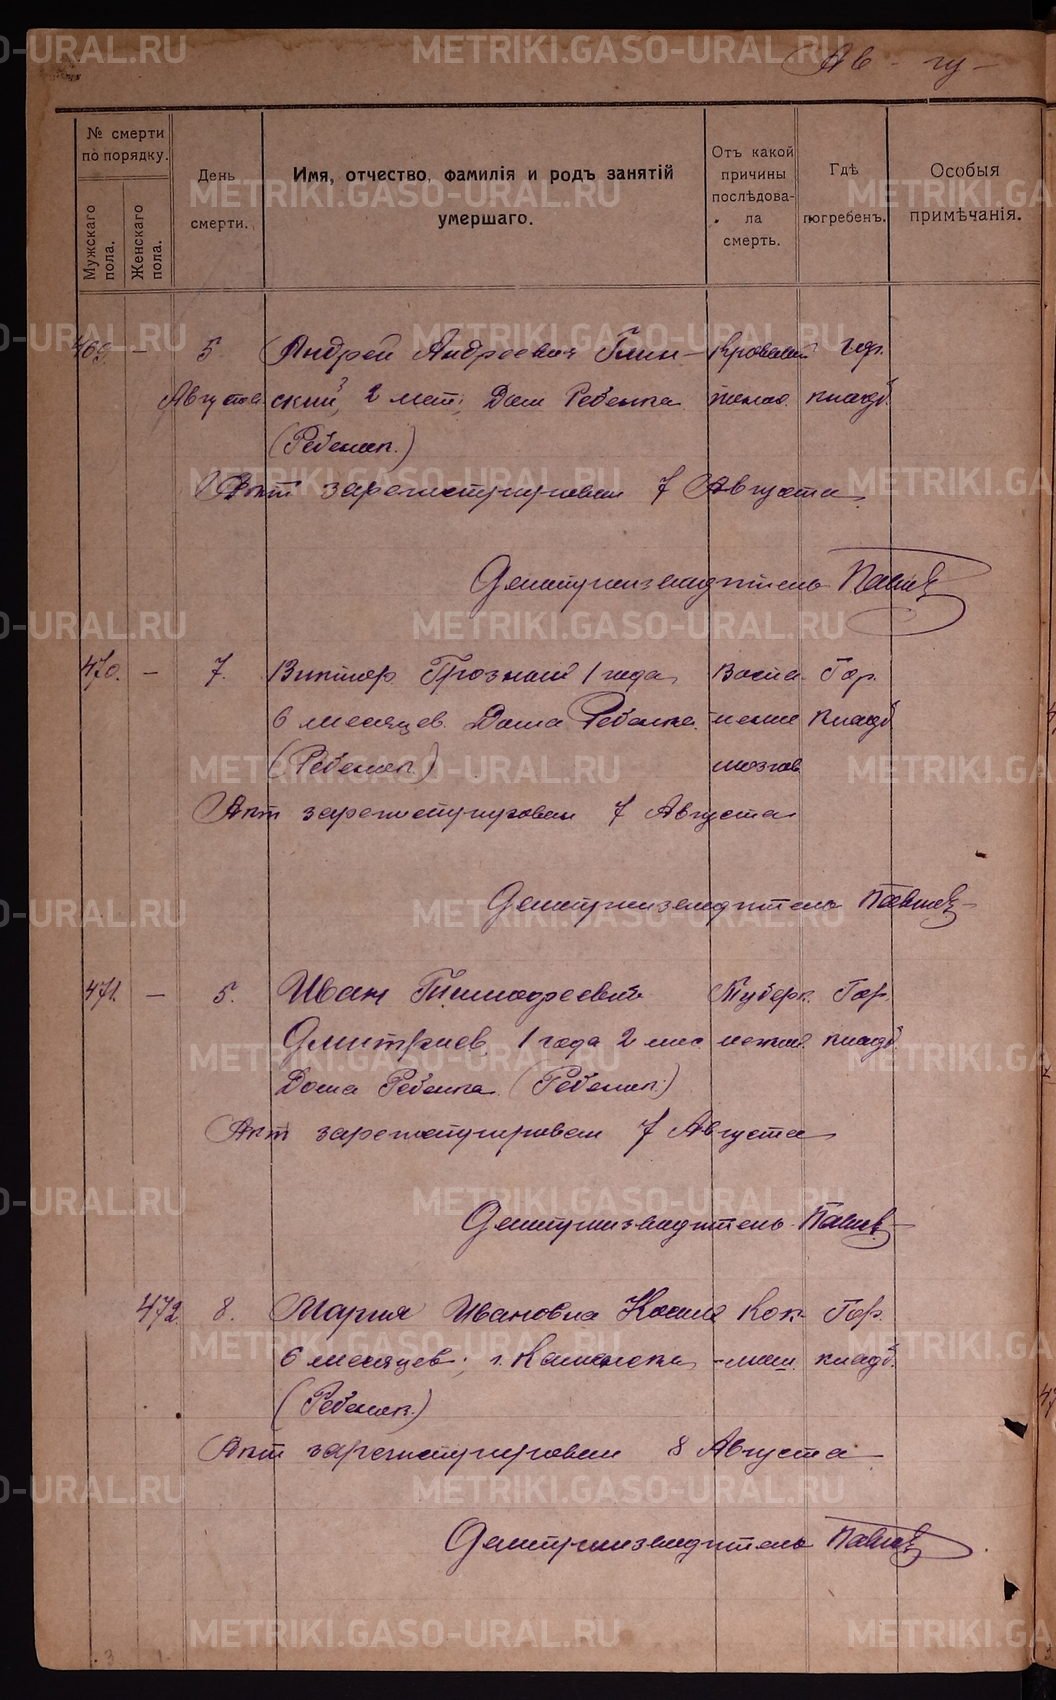 Ав - гу -
№ смерти по порядку.
Мужскаго пола.
Женскаго пола.
День смерти.
Имя, отчество, фамилія и родъ занятій умершаго.
Отъ какой причины послѣдовала смерть.
Гдѣ погребенъ.
Особыя примѣчанія.
469. — 5 Андрей Андреевич Глин- Кровавый гор.
Августа ский, 2 лет, Дом Ребенка понос. кладб.
(Ребенок.)
Акт зарегистрирован 7 Августа
Делопроизводитель
470. — 7. Виктор Грозный 1 года Воспа- Гор.
6 месяцев. Дома Ребенка. ление кладб.
(Ребенок.) мозгов
Акт зарегистрирован 7 Августа
Делопроизводитель
471. — 5. Иван Тимофеевич Туберк. Гор.
Дмитриев, 1 года 2 мес легких. кладб.
Дома Ребенка (Ребенок.)
Акт зарегистрирован 7 Августа
Делопроизводитель
472 8. Мария Ивановна Кок- Гор.
6 месяцев; г. Каменска -люш. кладб.
(Ребенок.)
Акт зарегистрирован 8 Августа
Делопроизводитель
METRIKI.GASO-URAL.RU